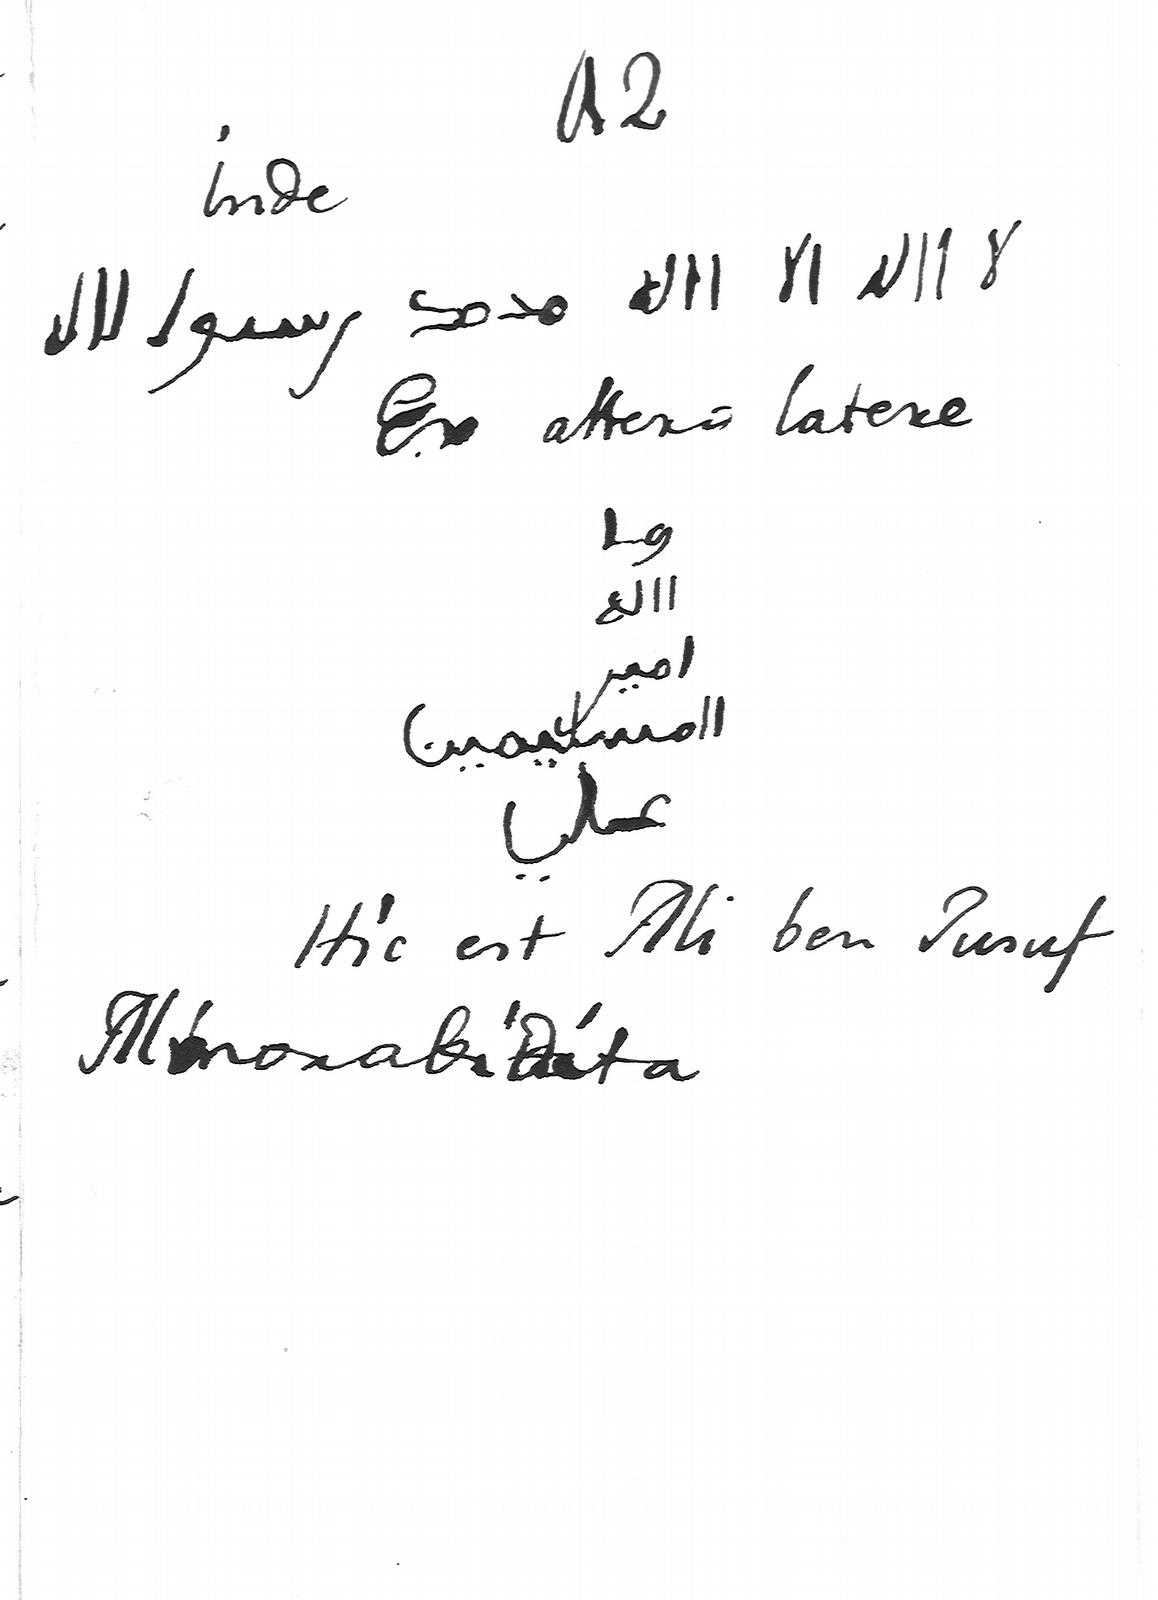 A2
inde
لا اله الا الله محمد رسول الله
Ex altera latere
ولى
الله
امير
المسلمين
علي
Hic est Ali ben Jusuf
Almorabidita